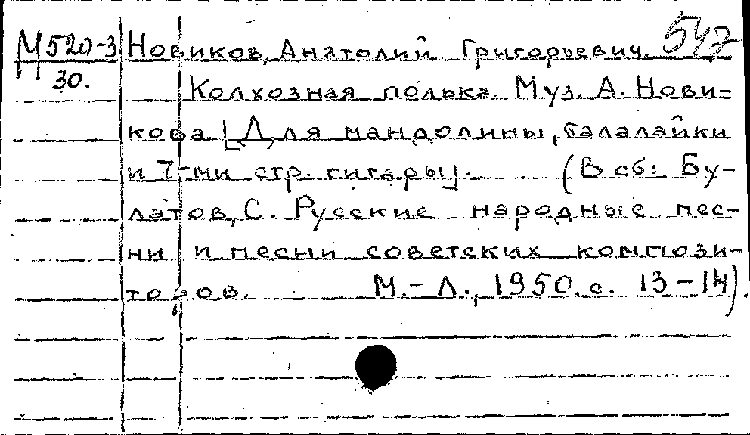 М520-3 Новиков, Анатолий Григорьевич. 547
30. Колхозная полька. Муз. А. Нови-
кова [Для мандолины, балалайки
и 7-ми стр. гитары]. (В сб: Бу-
латов, С. Русские народные пес-
ни и песни советских компози-
торов. М.-Л., 1950. с. 13-14).